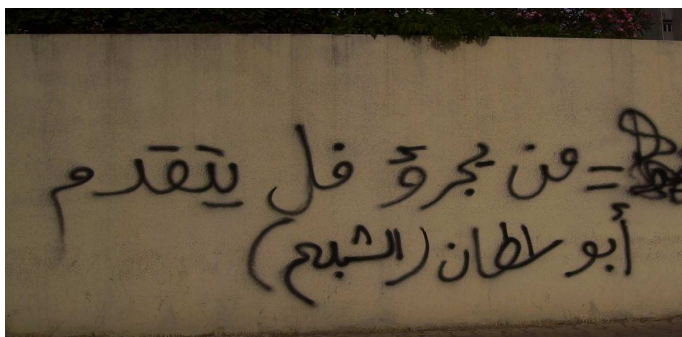 = من يجرؤ فل يتقدم
أبو سلطان (الشبح)